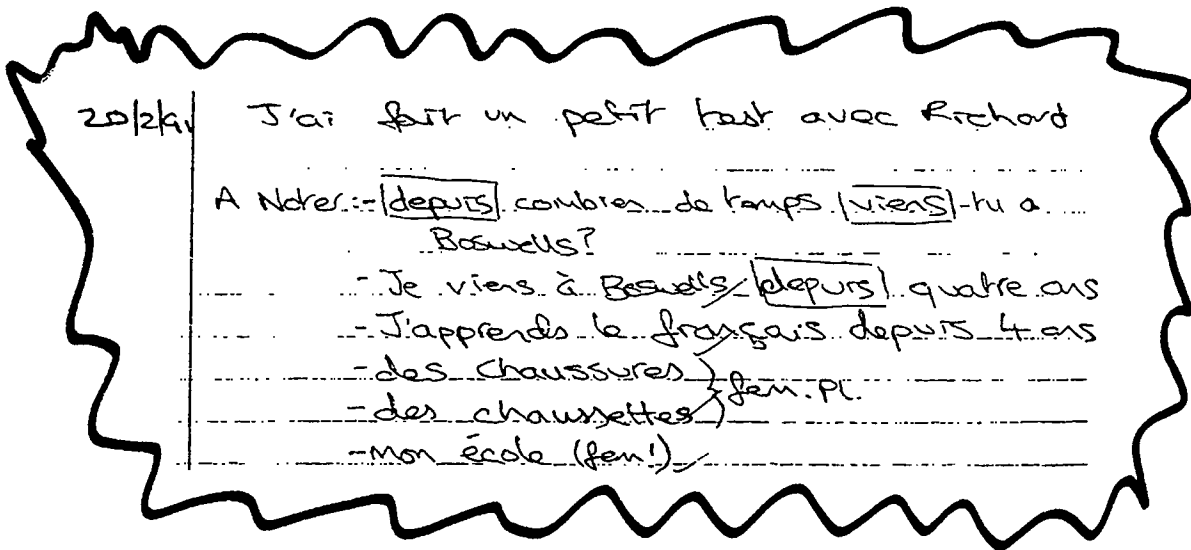 J'ai fait un petit test avec Richard
A Noter:- depuis combien de temps viens-tu a
Boswells?
- Je viens à Boswells depuis quatre ans
- J'apprends le français depuis 4 ans
- des chaussures
- des chaussettes } fem. Pl.
- mon école (fem!)